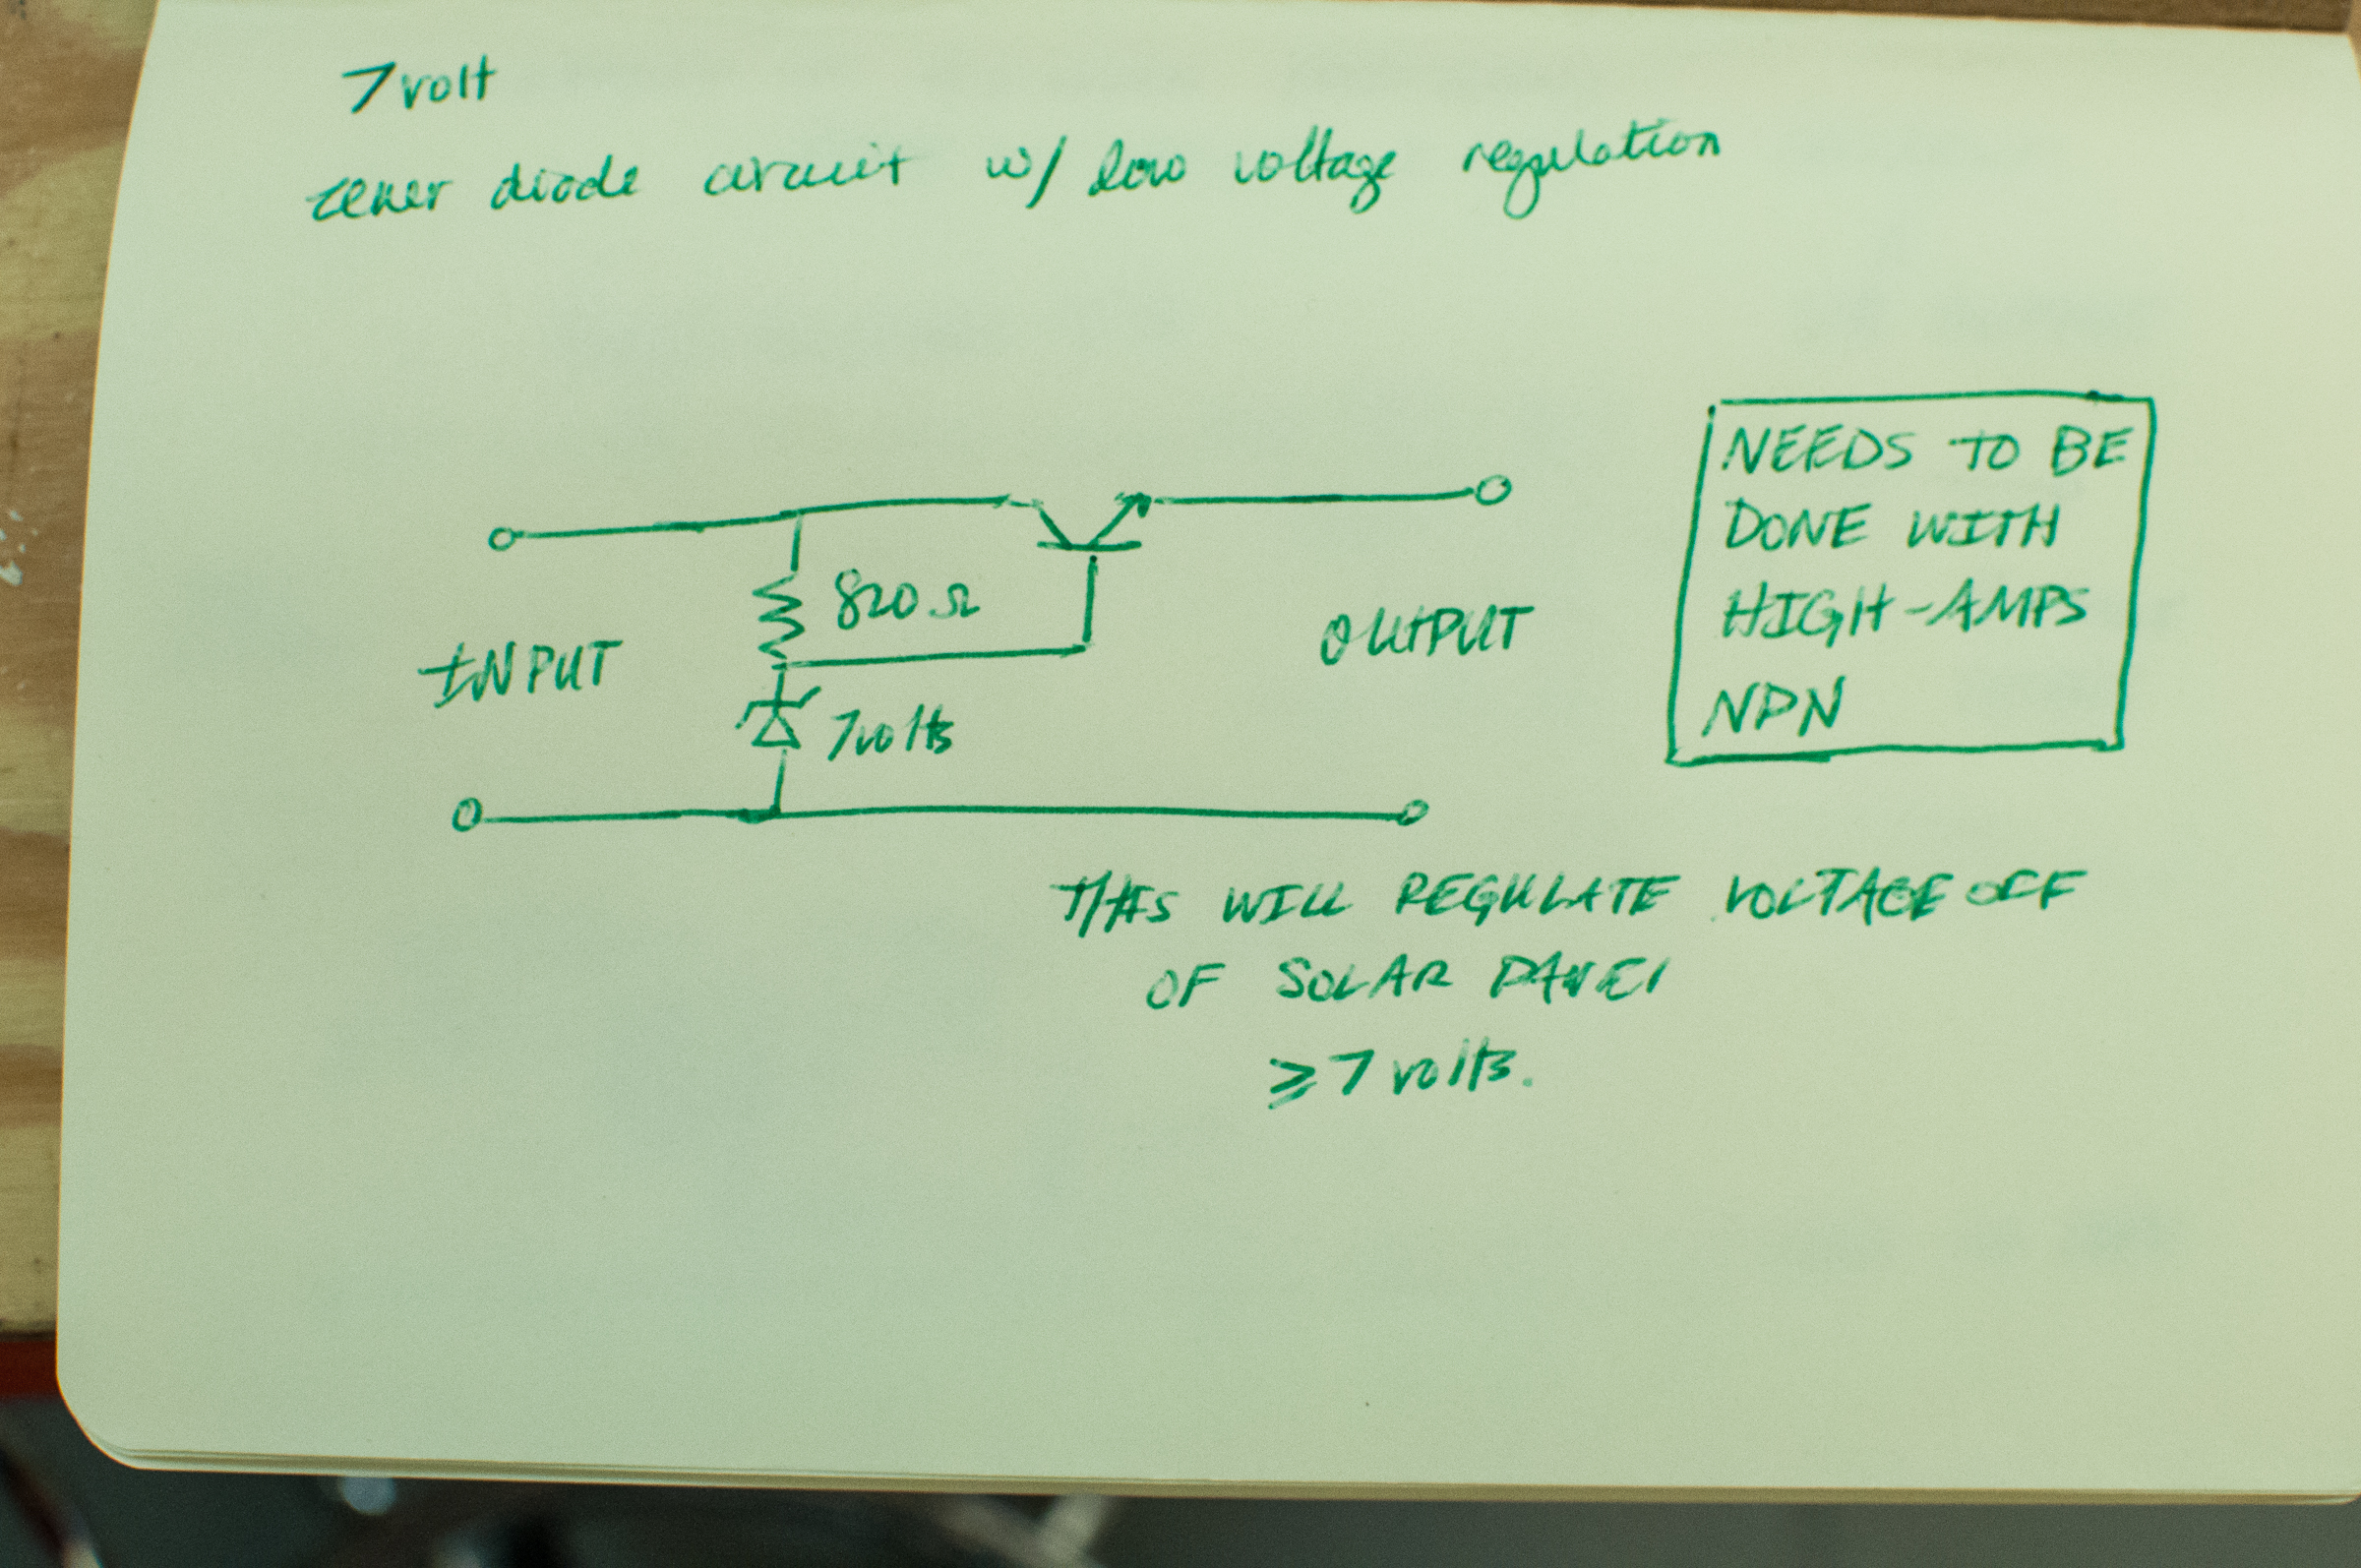 7 volt
zener diode circuit w/ low voltage regulation
NEEDS TO BE
DONE WITH
HIGH-AMPS
NPN
820 Ω
INPUT
OUTPUT
7 volts
THIS WILL REGULATE VOLTAGE OFF
OF SOLAR PANEl
≥ 7 volts.